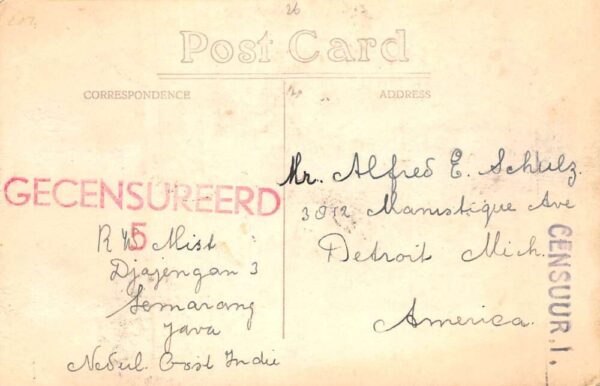 26
Post Card
CORRESPONDENCE
ADDRESS
GECENSUREERD
5
R W Mist
Djajengan 3
Semarang
Java
Nederl. Oost Indie
Mr. Alfred E. Schulz.
3812 Manistique Ave
Detroit Mich.
America.
CENSUUR 1.